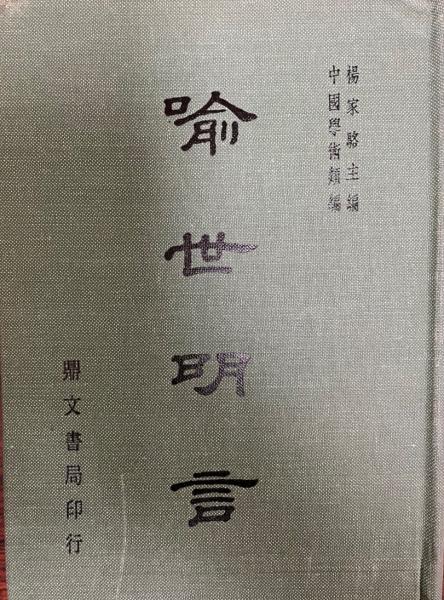 楊家駱主編
中國學術類編
喻世明言
鼎文書局印行